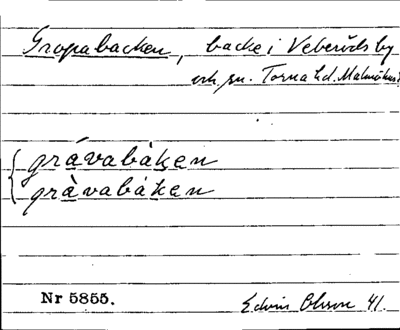 Gropabacken, backe i Veberöds by
och sn. Torna hd. Malmöhus
grávabáken
gràvabáken
Nr 5855.
Edvin Olsson 41.